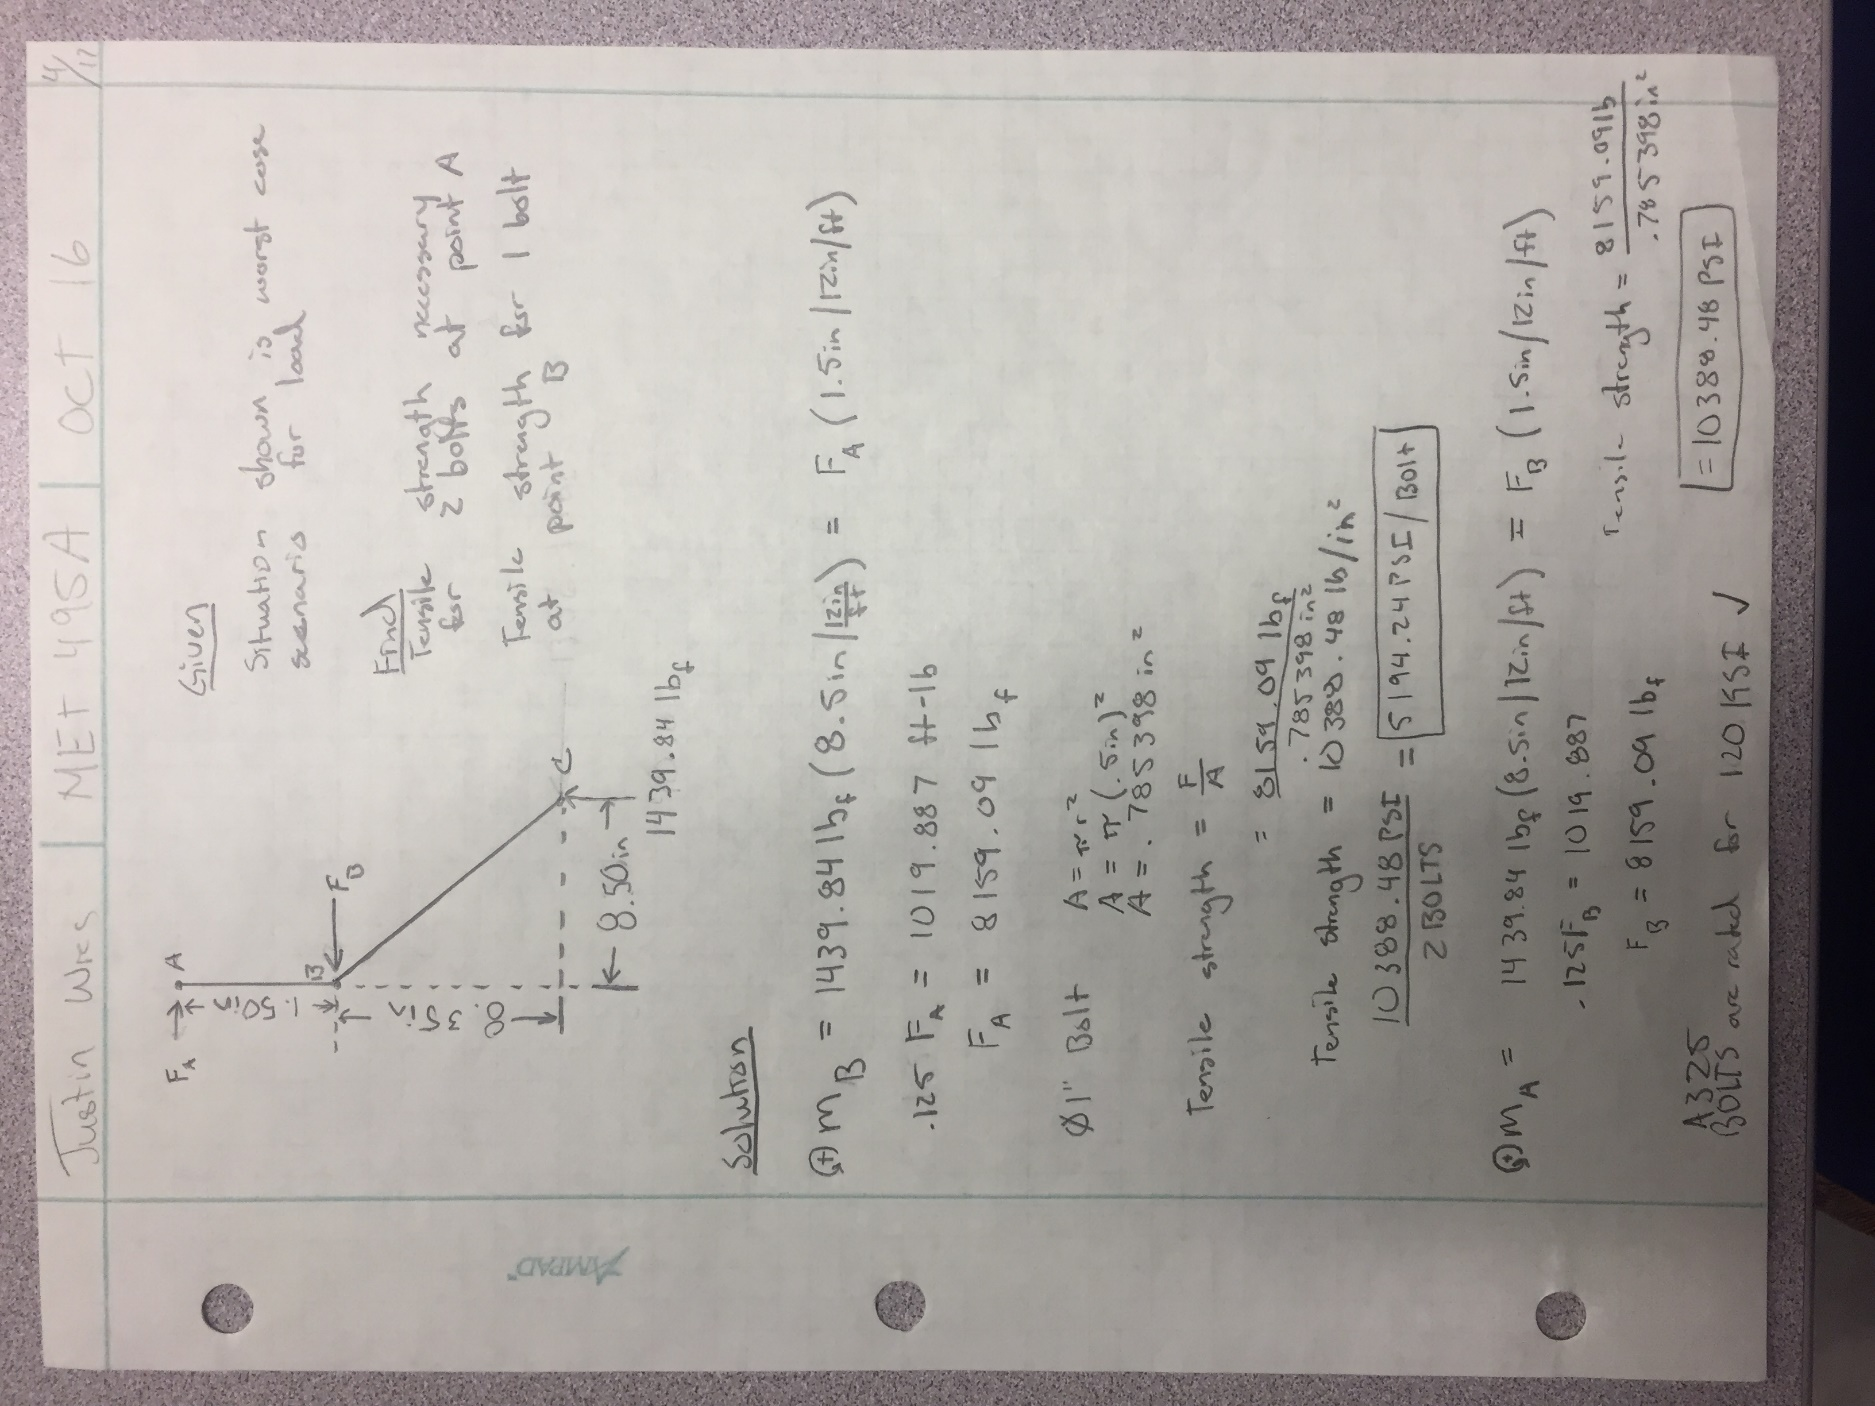 Justin Wies | MET 495A | OCT 16 4/17
Given
Situation shown is worst case
scenario for load
Find
Tensile strength necessary
for 2 bolts at point A
Tensile strength for 1 bolt
at point B
F_A
A
1.50 in
B
F_B
8.50in
C
1439.84 lb_f
Solution
(+) M_B = 1439.84 lb_f (8.5in/12in/ft) = F_A (1.5in/12in/ft)
.125 F_A = 1019.887 ft-lb
F_A = 8159.09 lb_f
Ø1" Bolt A = πr²
A = π(.5in)²
A = .785398 in²
Tensile strength = F/A
= 8159.09 lb_f / .785398 in²
Tensile strength = 10388.48 lb/in²
10388.48 PSI / 2 BOLTS = 5194.24 PSI/Bolt
(+) M_A = 1439.84 lb_f (8.5in/12in/ft) = F_B (1.5in/12in/ft)
.125F_B = 1019.887
F_B = 8159.09 lb_f
Tensile strength = 8159.09lb / .785398in²
= 10388.48 PSI
A325
BOLTS are rated for 120 KSI ✓
AMPAD